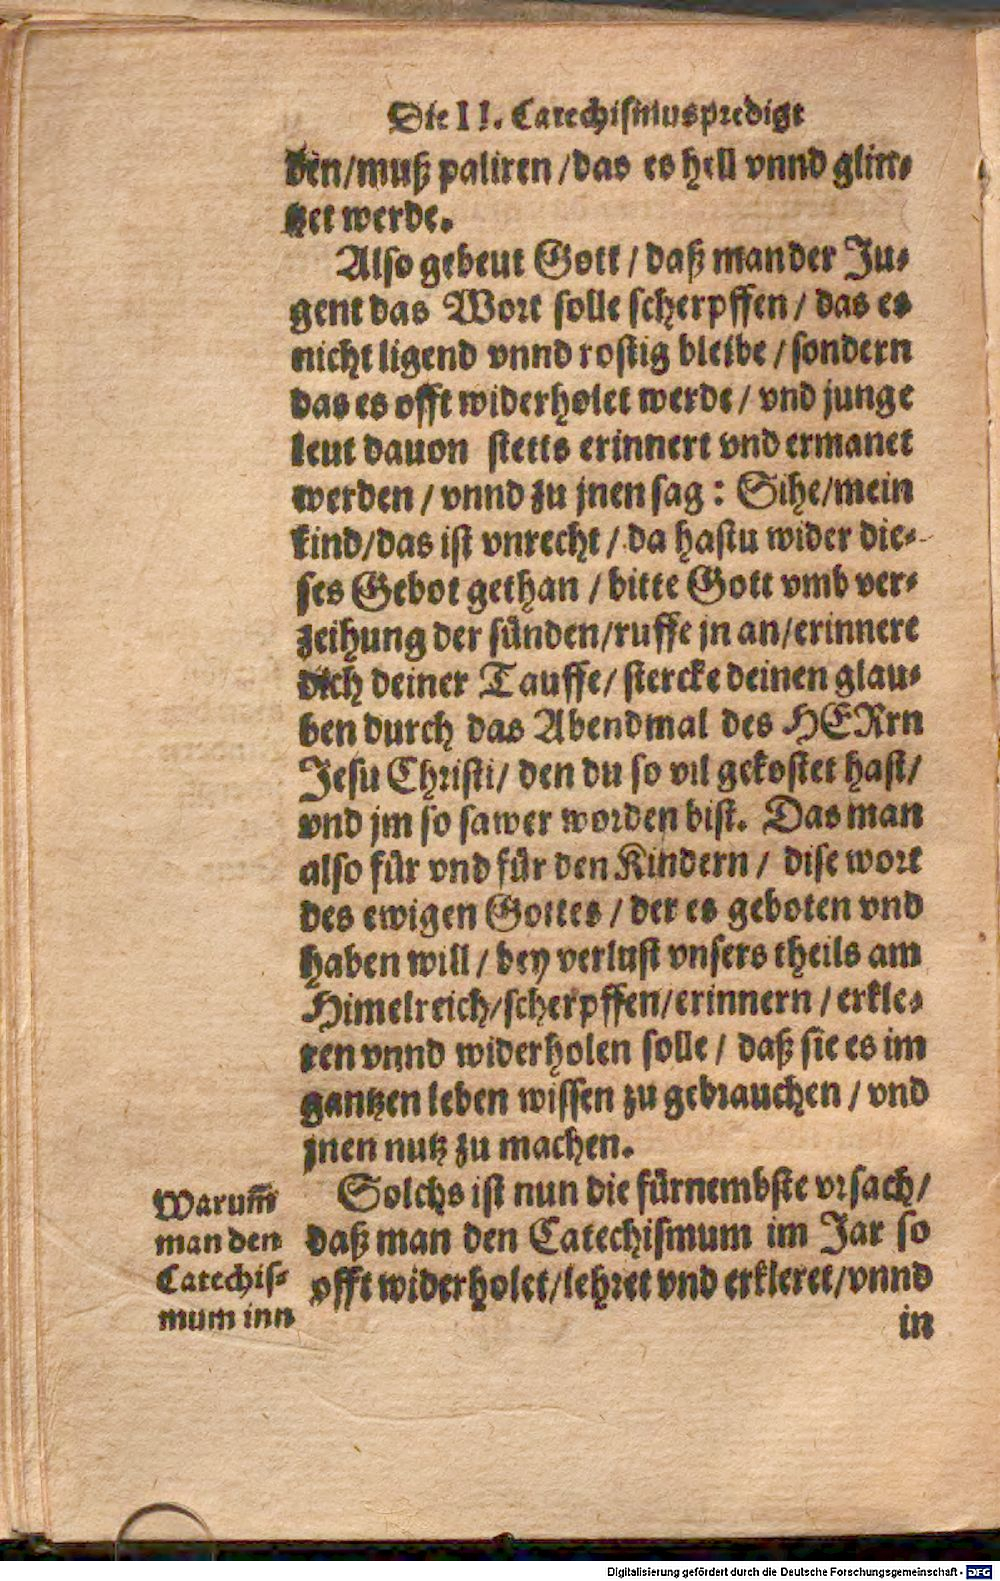 Die II. Catechismuspredigt
den/muß paliren/das es hell vnnd glin⸗
tzet werde.
Also gebeut Gott/daß man der Ju⸗
gent das Wort solle scherpffen/das es
nicht ligend vnnd rostig bleibe/sondern
das es offt widerholet werde/vnd junge
leut dauon stetts erinnert vnd ermanet
werden/vnnd zu jnen sag: Sihe/mein
kind/das ist vnrecht/da hastu wider die⸗
ses Gebot gethan/bitte Gott vmb ver⸗
zeihung der sünden/ruffe jn an/erinnere
dich deiner Tauffe/stercke deinen glau⸗
ben durch das Abendmal des HERrn
Jesu Christi/den du so vil gekostet hast/
vnd jm so sawer worden bist. Das man
also für vnd für den Kindern/dise wort
des ewigen Gottes/der es geboten vnd
haben will/bey verlust vnsers theils am
Himelreich/scherpffen/erinnern/erkle⸗
ren vnnd widerholen solle/daß sie es im
gantzen leben wissen zu gebrauchen/vnd
jnen nutz zu machen.
Solchs ist nun die fürnembste vrsach/
daß man den Catechismum im Jar so
offt widerholet/lehret vnd erkleret/vnnd
in
Warum̄
man den
Catechis⸗
mum inn
Digitalisierung gefördert durch die Deutsche Forschungsgemeinschaft - DFG